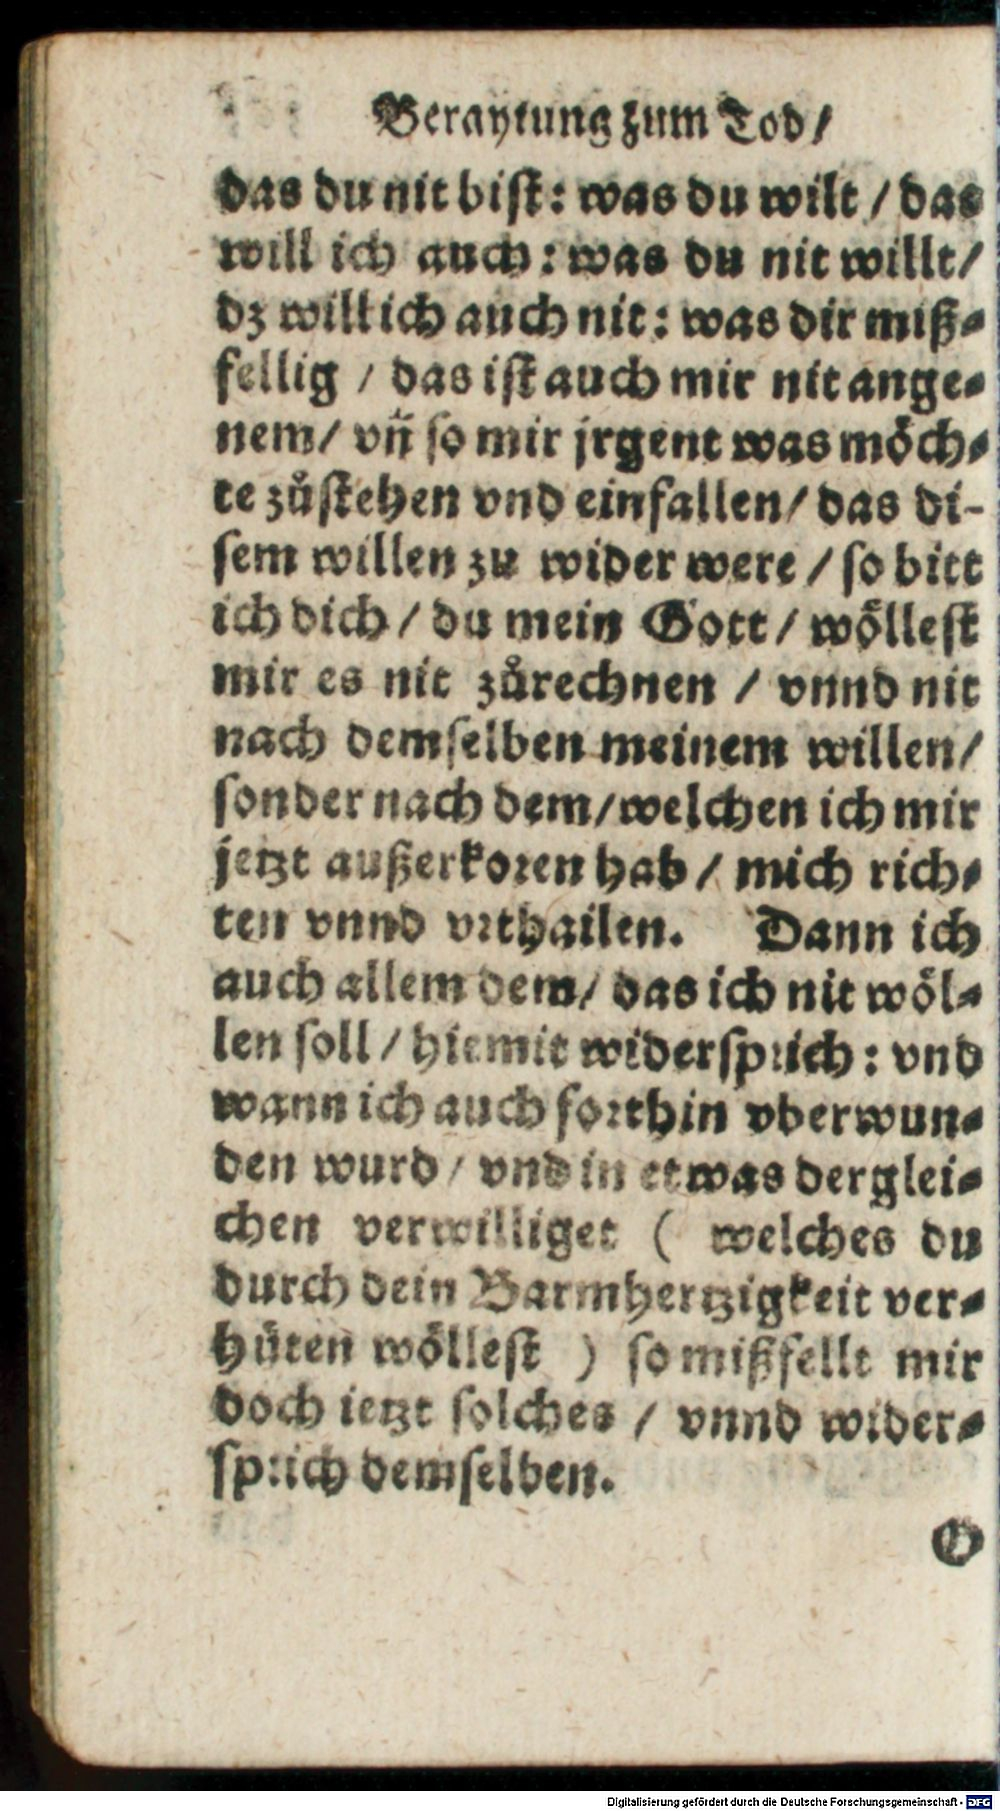 Beraytung zum Tod/
das du nit bist: was du wilt / das
will ich auch: was du nit willt/
dz will ich auch nit: was dir miß⸗
fellig / das ist auch mir nit ange⸗
nem/ vñ so mir jrgent was möch⸗
te zůstehen vnd einfallen/ das di-
sem willen zu wider were / so bitt
ich dich / du mein Gott / wöllest
mir es nit zůrechnen / vnnd nit
nach demselben meinem willen/
sonder nach dem/ welchen ich mir
jetzt außerkoren hab / mich rich⸗
ten vnnd vrthailen. Dann ich
auch allem dem/ das ich nit wöl⸗
len soll / hiemit widersprich: vnd
wann ich auch forthin vberwun⸗
den wurd / vnd in etwas derglei⸗
chen verwilliget ( welches du
durch dein Barmhertzigkeit ver⸗
hüten wöllest ) so mißfellt mir
doch ietzt solches / vnnd wider⸗
sprich demselben.
O
Digitalisierung gefördert durch die Deutsche Forschungsgemeinschaft - DFG